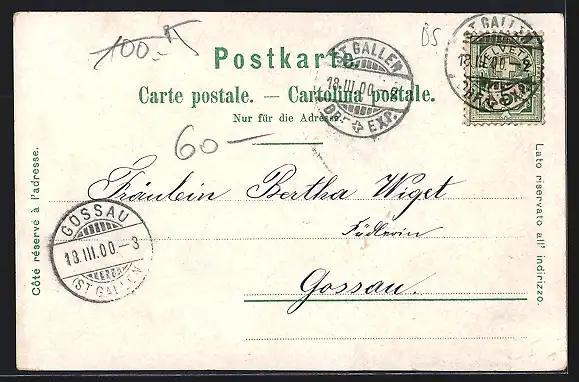 100.-
BS
Postkarte.
Carte postale. — Cartolina postale.
Nur für die Adresse.
60 —
ST. GALLEN
18.III.00.-8
BRF. EXP.
ST. GALLEN
18.III.00.-8
BRF. EXP.
HELVETIA
Fräulein Bertha Wiget
Gossau.
GOSSAU
18.III.00.-3
(ST. GALLEN)
Côté réservé à l'adresse.
Lato riservato all' indirizzo.